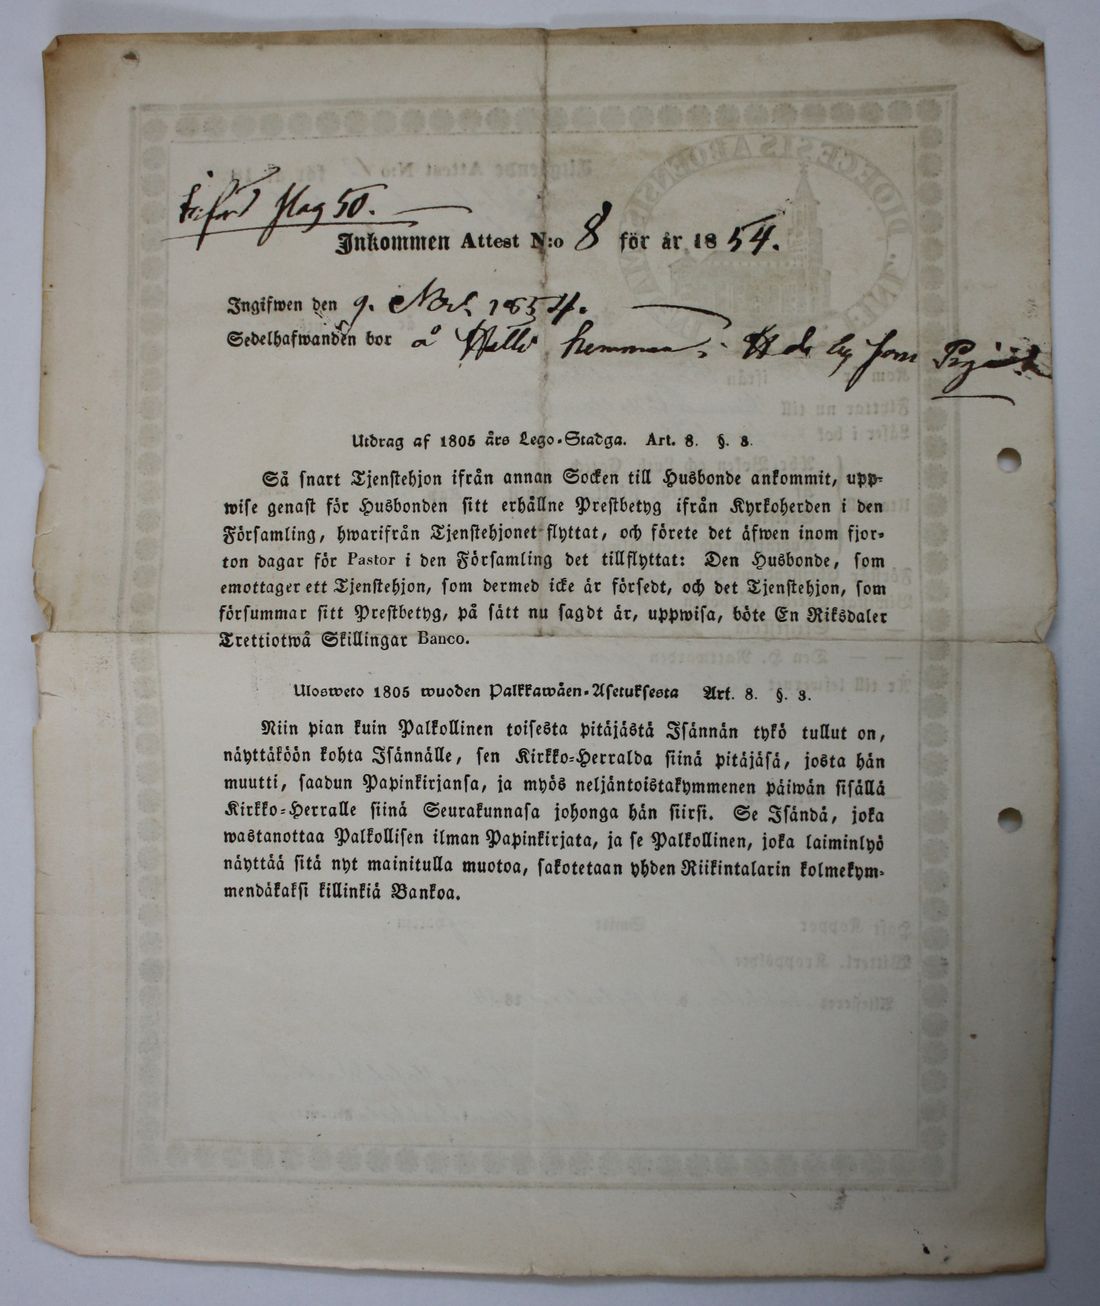 pag 50.
Inkommen Attest N:o 8 för år 1854.
Ingifwen den 9. Nov. 1854.
Sedelhafwanden bor å hemman i by som
Utdrag af 1805 års Lego-Stadga. Art. 8. §. 3.
Så snart Tjenstehjon ifrån annan Socken till Husbonde ankommit, upp-
wise genast för Husbonden sitt erhållne Prestbetyg ifrån Kyrkoherden i den
Församling, hwarifrån Tjenstehjonet flyttat, och förete det äfwen inom fjor-
ton dagar för Pastor i den Församling det tillflyttat: Den Husbonde, som
emottager ett Tjenstehjon, som dermed icke är försedt, och det Tjenstehjon, som
försummar sitt Prestbetyg, på sätt nu sagdt är, uppwisa, böte En Riksdaler
Trettiotwå Skillingar Banco.
Ulosweto 1805 wuoden Palkkawäen-Asetuksesta Art. 8. §. 3.
Niin pian kuin Palkollinen toisesta pitäjästä Isännän tykö tullut on,
näyttäköön kohta Isännälle, sen Kirkko-Herralda siinä pitäjäsä, josta hän
muutti, saadun Papinkirjansa, ja myös neljäntoistakymmenen päiwän sisällä
Kirkko-Herralle siinä Seurakunnasa johonga hän siirsi. Se Isändä, joka
wastanottaa Palkollisen ilman Papinkirjata, ja se Palkollinen, joka laiminlyö
näyttää sitä nyt mainitulla muotoa, sakotetaan yhden Riikintalarin kolmekym-
mendäkaksi killinkiä Bankoa.